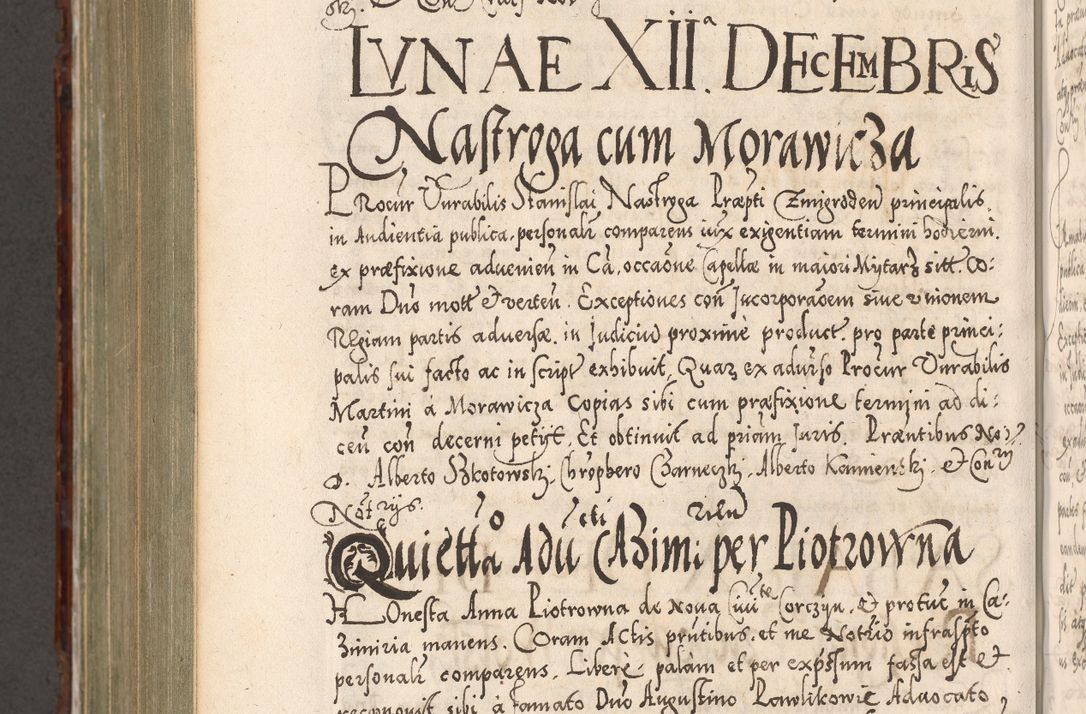 LVNAE XII.a DECEMBRIS
Nastroga cum Morawicza
PRocur Vnrabilis Stanislai Nastroga Præpti Zmigroden principalis
in Audientia publica personalr comparens iux exigentiam termini hodierni.
ex præfixione aduenien in Ca, occaone Capellæ in maiori Mytarz sitt. Co:
ram Dno mott et verten. Exceptiones con Incorporaoem siue vnionem
REgiam partis aduersæ in Judiciu proxime product. pro parte princi:
palis sui facto ac in script exhibuit, Quaz ex aduerso Procur Vnrabilis
Martini á Morawicza Copias sibi cum præfixione termini ad di:
cen con decerni petijt. Et obtinuit ad priam Juris. Præntibus No
D. Alberto Szkotowski, Chrophero Czarneczki, Alberto Kamienski. et Con
Notrys.
Quietto Aducti CAZimirien per Piotrowna
HOnesta Anna Piotrowna de Noua Ciuite Corczyn, et protuc in Ca:
zimiria manens. Coram Actis prntibus et me Notrio infraspto
personalr comparens. Liberè palám et per expssum fassa est et
recognouit sibi à famato Dno Augustino Pawlikowic Aduocato